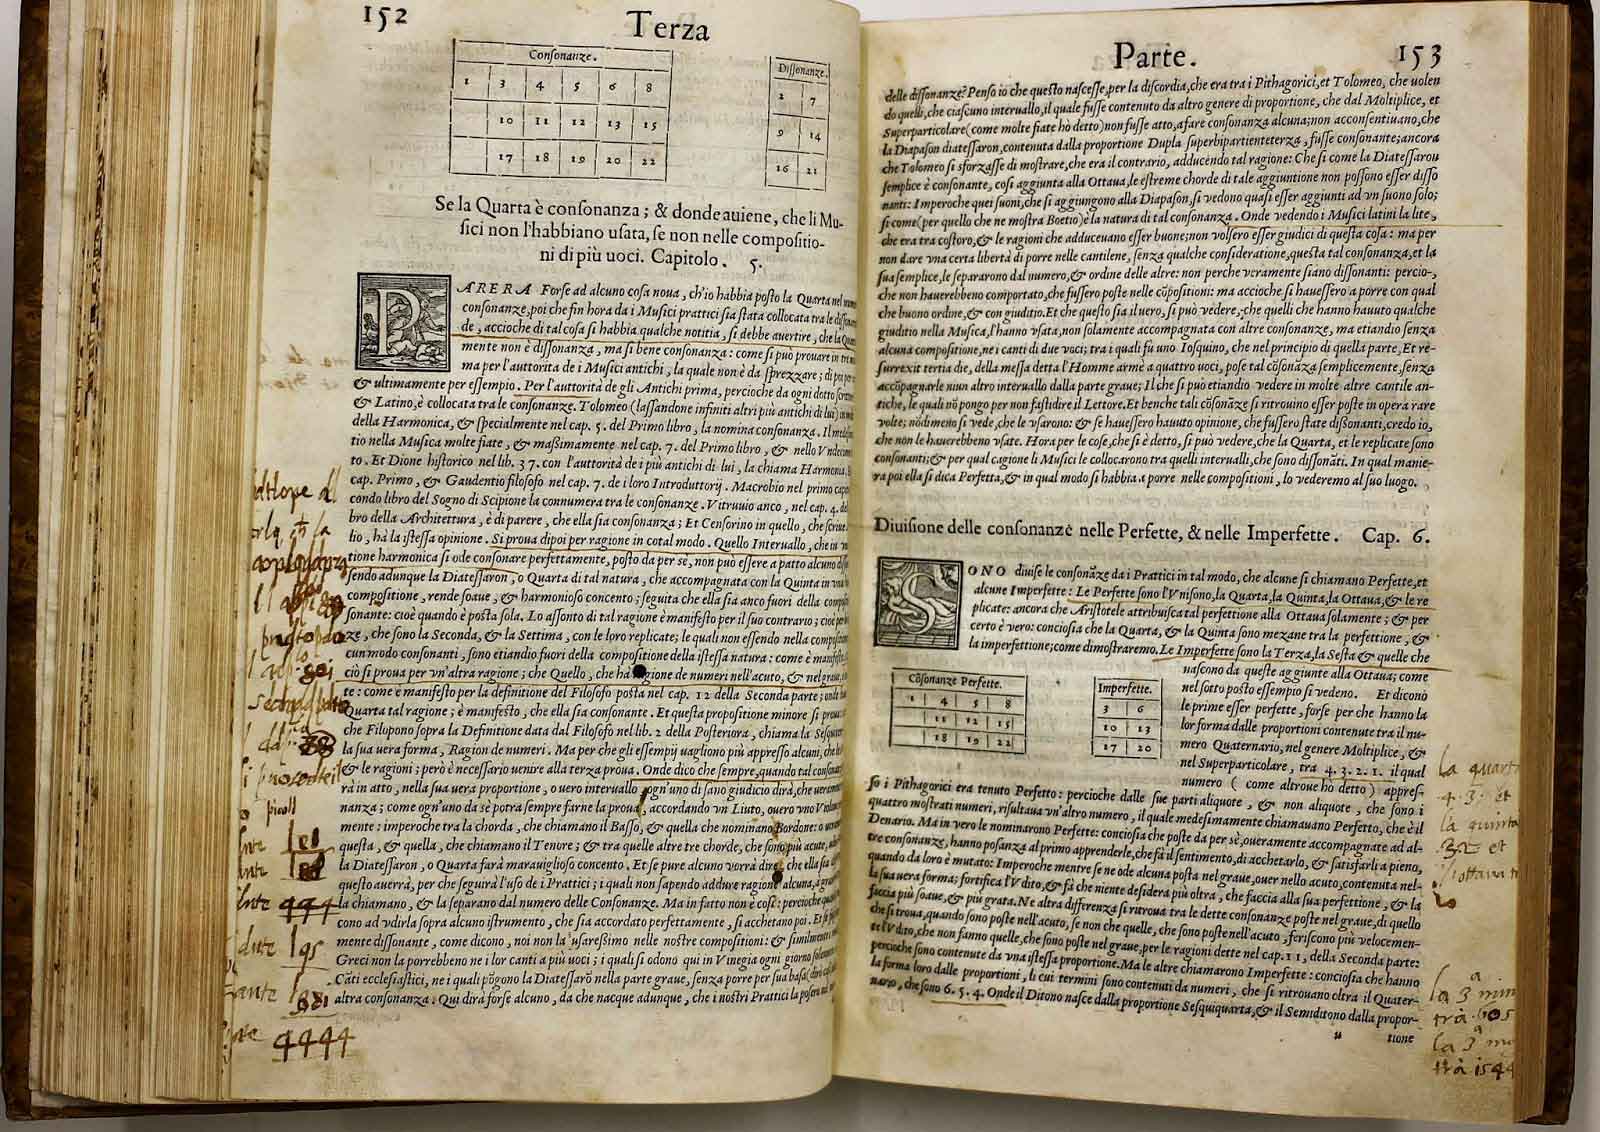 152
Terza
Conſonanze.
1 3 4 5 6 8
10 11 12 13 15
17 18 19 20 22
Diſſonanze.
2 7
9 14
16 21
Se la Quarta è conſonanza; & donde auiene, che li Mu-
ſici non l'habbiano uſata, ſe non nelle compoſitio-
ni di più uoci. Capitolo. 5.
PARERA Forſe ad alcuno coſa noua, ch'io habbia poſto la Quarta nel
conſonanze, poi che fin hora da i Muſici prattici ſia ſtata collocata tra le
de, accioche di tal coſa ſi habbia qualche notitia, ſi debbe auertire, che la
mente non è diſſonanza, ma ſi bene conſonanza: come ſi può prouare in tre
ma per l'auttorità de i Muſici antichi, la quale non è da ſprezzare; di poi
& ultimamente per eſſempio. Per l'auttorità de gli Antichi prima, percioche da ogni dotto
& Latino, è collocata tra le conſonanze. Tolomeo (laſſandone infiniti altri più antichi di lui)
della Harmonica, & ſpecialmente nel cap. 5. del Primo libro, la nomina conſonanza. Il
tio nella Muſica molte fiate, & maßimamente nel cap. 7. del Primo libro, & nello
to. Et Dione hiſtorico nel lib. 37. con l'auttorità de i più antichi di lui, la chiama Harmonia.
cap. Primo, & Gaudentio filoſofo nel cap. 7. de i loro Introduttorij. Macrobio nel primo
condo libro del Sogno di Scipione la connumera tra le conſonanze. Vitruuio anco, nel cap. 4.
bro della Architettura, è di parere, che ella ſia conſonanza; Et Cenſorino in quello, che
lio, hà la iſteſſa opinione. Si proua dipoi per ragione in cotal modo. Quello Interuallo, che in
tione harmonica ſi ode conſonare perfettamente, poſto da per ſe, non può eſſere a patto alcuno
ſendo adunque la Diateſſaron, o Quarta di tal natura, che accompagnata con la Quinta in
compoſitione, rende ſoaue, & harmonioſo concento; ſeguita che ella ſia anco fuori della
ſonante: cioè quando è poſta ſola. Lo aſſonto di tal ragione è manifeſto per il ſuo contrario; cioè
ze, che ſono la Seconda, & la Settima, con le loro replicate; le quali non eſſendo nella
cun modo conſonanti, ſono etiandio fuori della compoſitione della iſteſſa natura: come è
ciò ſi proua per vn'altra ragione; che Quello, che hà ragione de numeri nell'acuto, & nel graue,
te: come è manifeſto per la definitione del Filoſofo poſta nel cap. 12 della Seconda parte;
Quarta tal ragione; è manifeſto, che ella ſia conſonante. Et queſta propoſitione minore ſi
che Filopono ſopra la Definitione data dal Filoſofo nel lib. 2 della Poſteriora, chiama la
la ſua uera forma, Ragion de numeri. Ma per che gli eſſempij uagliono più appreſſo alcuni, che
& le ragioni; però è neceſſario uenire alla terza proua. Onde dico che ſempre, quando tal
rà in atto, nella ſua uera proportione, o uero interuallo ogn'uno di ſano giudicio dirà, che
nanza; come ogn'uno da ſe potrà ſempre farne la proua, accordando vn Liuto, ouero vno
mente: imperoche tra la chorda, che chiamano il Baſſo, & quella che nominano Bordone:
queſta, & quella, che chiamano il Tenore; & tra quelle altre tre chorde, che ſono più acute,
la Diateſſaron, o Quarta farà marauiglioſo concento. Et ſe pure alcuno vorrà dire, che ella ſia
queſto auerrà, per che ſeguirà l'uſo de i Prattici; i quali non ſapendo addure ragione alcuna,
la chiamano, & la ſeparano dal numero delle Conſonanze. Ma in fatto non è coſi: percioche
cono ad vdirla ſopra alcuno iſtrumento, che ſia accordato perfettamente, ſi acchetano poi. Et
mente diſſonante, come dicono, noi non la uſareſſimo nelle noſtre compoſitioni: &
Greci non la porrebbeno ne i lor canti a più uoci; i quali ſi odono qui in Vinegia ogni giorno
Cāti eccleſiaſtici, ne i quali pōgono la Diateſſarō nella parte graue, ſenza porre per ſua baſe,
altra conſonanza. Qui dirà forſe alcuno, da che nacque adunque, che i noſtri Prattici la
Parte.
153
delle diſſonanze? Penſo io che queſto naſceſſe, per la diſcordia, che era tra i Pithagorici, et Tolomeo, che uolen
do quelli, che ciaſcuno interuallo, il quale fuſſe contenuto da altro genere di proportione, che dal Moltiplice, et
Superparticolare (come molte fiate hò detto) non fuſſe atto, a fare conſonanza alcuna; non acconſentiuano, che
la Diapaſon diateſſaron, contenuta dalla proportione Dupla ſuperbipartienteterza, fuſſe conſonante; ancora
che Tolomeo ſi sforzaſſe di moſtrare, che era il contrario, adducendo tal ragione: Che ſi come la Diateſſaron
ſemplice è conſonante, coſi aggiunta alla Ottaua, le eſtreme chorde di tale aggiuntione non poſſono eſſer diſſo
nanti: Imperoche quei ſuoni, che ſi aggiungono alla Diapaſon, ſi vedono quaſi eſſer aggiunti ad vn ſuono ſolo;
ſi come (per quello che ne moſtra Boetio) è la natura di tal conſonanza. Onde vedendo i Muſici latini la lite,
che era tra coſtoro, & le ragioni che adduceuano eſſer buone; non volſero eſſer giudici di queſta coſa: ma per
non dare vna certa libertà di porre nelle cantilene, ſenza qualche conſideratione, queſta tal conſonanza, et la
ſua ſemplice, le ſepararono dal numero, & ordine delle altre: non perche veramente ſiano diſſonanti: percio,
che non hauerebbeno comportato, che fuſſero poſte nelle cōpoſitioni: ma accioche ſi haueſſero a porre con qual
che buono ordine, & con giuditio. Et che queſto ſia il uero, ſi può vedere, che quelli che hanno hauuto qualche
giuditio nella Muſica, l'hanno vſata, non ſolamente accompagnata con altre conſonanze, ma etiandio ſenza
alcuna compoſitione, ne i canti di due voci; tra i quali fù uno Ioſquino, che nel principio di quella parte, Et re-
ſurrexit tertia die, della meſſa detta l'Homme armè a quattro uoci, poſe tal cōſonāza ſemplicemente, ſenza
accōpagnarle niun altro interuallo dalla parte graue; Il che ſi può etiandio vedere in molte altre cantile an-
tiche, le quali nō pongo per non faſtidire il Lettore. Et benche tali cōſonāze ſi ritrouino eſſer poſte in opera rare
volte; nōdimeno ſi vede, che le vſarono: & ſe haueſſero hauuto opinione, che fuſſero ſtate diſſonanti, credo io,
che non le hauerebbeno vſate. Hora per le coſe, che ſi è detto, ſi può vedere, che la Quarta, et le replicate ſono
conſonanti; & per qual cagione li Muſici le collocarono tra quelli interualli, che ſono diſſonāti. In qual manie-
ra poi ella ſi dica Perfetta, & in qual modo ſi habbia a porre nelle compoſitioni, lo vederemo al ſuo luogo.
Diuiſione delle conſonanze nelle Perfette, & nelle Imperfette. Cap. 6.
SONO diuiſe le conſonāze da i Prattici in tal modo, che alcune ſi chiamano Perfette, et
alcune Imperfette: Le Perfette ſono l'Vniſono, la Quarta, la Quinta, la Ottaua, & le re
plicate: ancora che Ariſtotele attribuiſca tal perfettione alla Ottaua ſolamente; & per
certo è vero: concioſia che la Quarta, & la Quinta ſono mezane tra la perfettione, &
la imperfettione; come dimoſtraremo. Le Imperfette ſono la Terza, la Seſta & quelle che
Cōſonanze Perfette.
1 4 5 8
11 12 15
18 19 22
Imperfette.
3 6
10 13
17 20
naſcono da queſte aggiunte alla Ottaua; come
nel ſotto poſto eſſempio ſi vedeno. Et dicono
le prime eſſer perfette, forſe per che hanno la
lor forma dalle proportioni contenute tra il nu-
mero Quaternario, nel genere Moltiplice, &
nel Superparticolare, tra 4. 3. 2. 1. il qual
numero (come altroue ho detto) appreſ-
ſo i Pithagorici era tenuto Perfetto: percioche dalle ſue parti aliquote, & non aliquote, che ſono i
quattro moſtrati numeri, riſultaua vn'altro numero, il quale medeſimamente chiamauano Perfetto, che è il
Denario. Ma in vero le nominarono Perfette: concioſia che poſte da per sè, oueramente accompagnate ad al-
tre conſonanze, hanno poſanza al primo apprenderle, che fà il ſentimento, di acchetarlo, & ſatisfarli a pieno,
quando da loro è mutato: Imperoche mentre ſe ne ode alcuna poſta nel graue, ouer nello acuto, contenuta nel-
la ſua vera forma; fortifica l'Vdito, & fà che niente deſidera più oltra, che faccia alla ſua perfettione, & la
faccia più ſoaue, & più grata. Ne altra differenza ſi ritroua tra le dette conſonanze poſte nel graue, di quello
che ſi troua, quando ſono poſte nell'acuto, ſe non che quelle, che ſono poſte nell'acuto, feriſcono più velocemen-
te l'Vdito, che non fanno quelle, che ſono poſte nel graue, per le ragioni dette nel cap. 11, della Seconda parte:
percioche ſono contenute da vna iſteſſa proportione. Ma le altre chiamarono Imperfette: concioſia che hanno
la forma loro dalle proportioni, li cui termini ſono contenuti da numeri, che ſi ritrouano oltra il Quater-
nario, che ſono 6. 5. 4. Onde il Ditono naſce dalla proportione Seſquiquarta, & il Semiditono dalla propor-
u tione
la quarta
4. 3. et
la quinta
et
la 3a
la 3a
444
95
4444